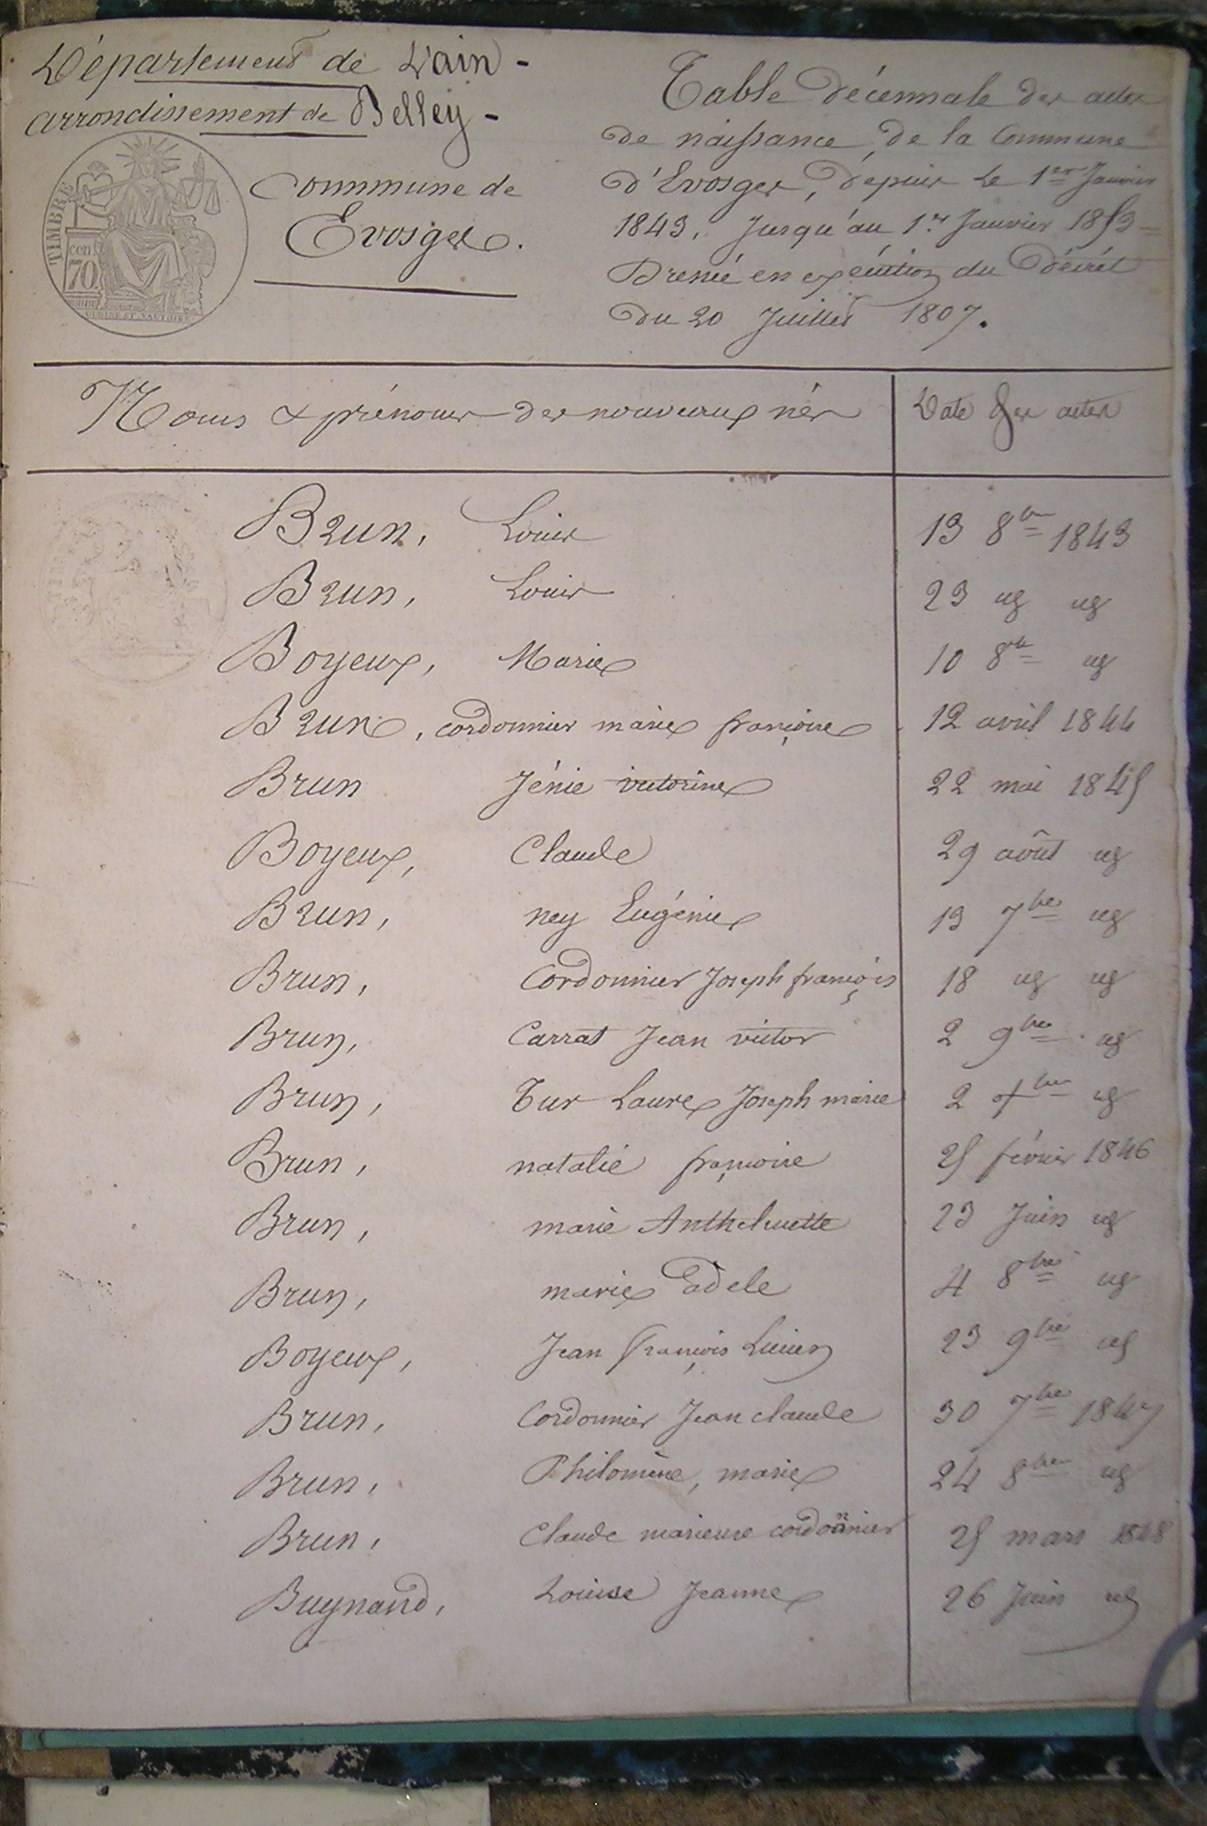 Département de L'ain -
arrondissement de Belley -
Commune de
Evosges.
TIMBRE
cen
70
Table décennale des actes
de naissance, de la Commune
d'Evosges, depuis le 1er Janvier
1843, Jusqu'au 1er Janvier 1853
Dressée en exécution du Décrêt
du 20 Juillet 1807.
Noms & prénoms des nouveaux nés
Date des actes
Brun, Louis 13 8bre 1843
Brun, Louis 23 id id
Boyeux, Marie 10 8bre id
Brun, cordonnier marie françoise 12 avril 1844
Brun Jénie victorine 22 mai 1845
Boyeux, Claude 29 août id
Brun, ney Eugénie 13 7bre id
Brun, Cordonnier Joseph françois 18 id id
Brun, Carrat Jean victor 2 9bre id
Brun, Tur Laure Joseph marie 2 xbre id
Brun, natalie françoise 25 février 1846
Brun, marie Anthelmette 23 Juin id
Brun, marie adele 4 8bre id
Boyeux, Jean françois Lucien 23 9bre id
Brun, Cordonnier Jean claude 30 7bre 1847
Brun, Philomène, marie 24 8bre id
Brun, Claude marieuse cordonnier 25 mars 1848
Buynand, Louise Jeanne 26 Juin id